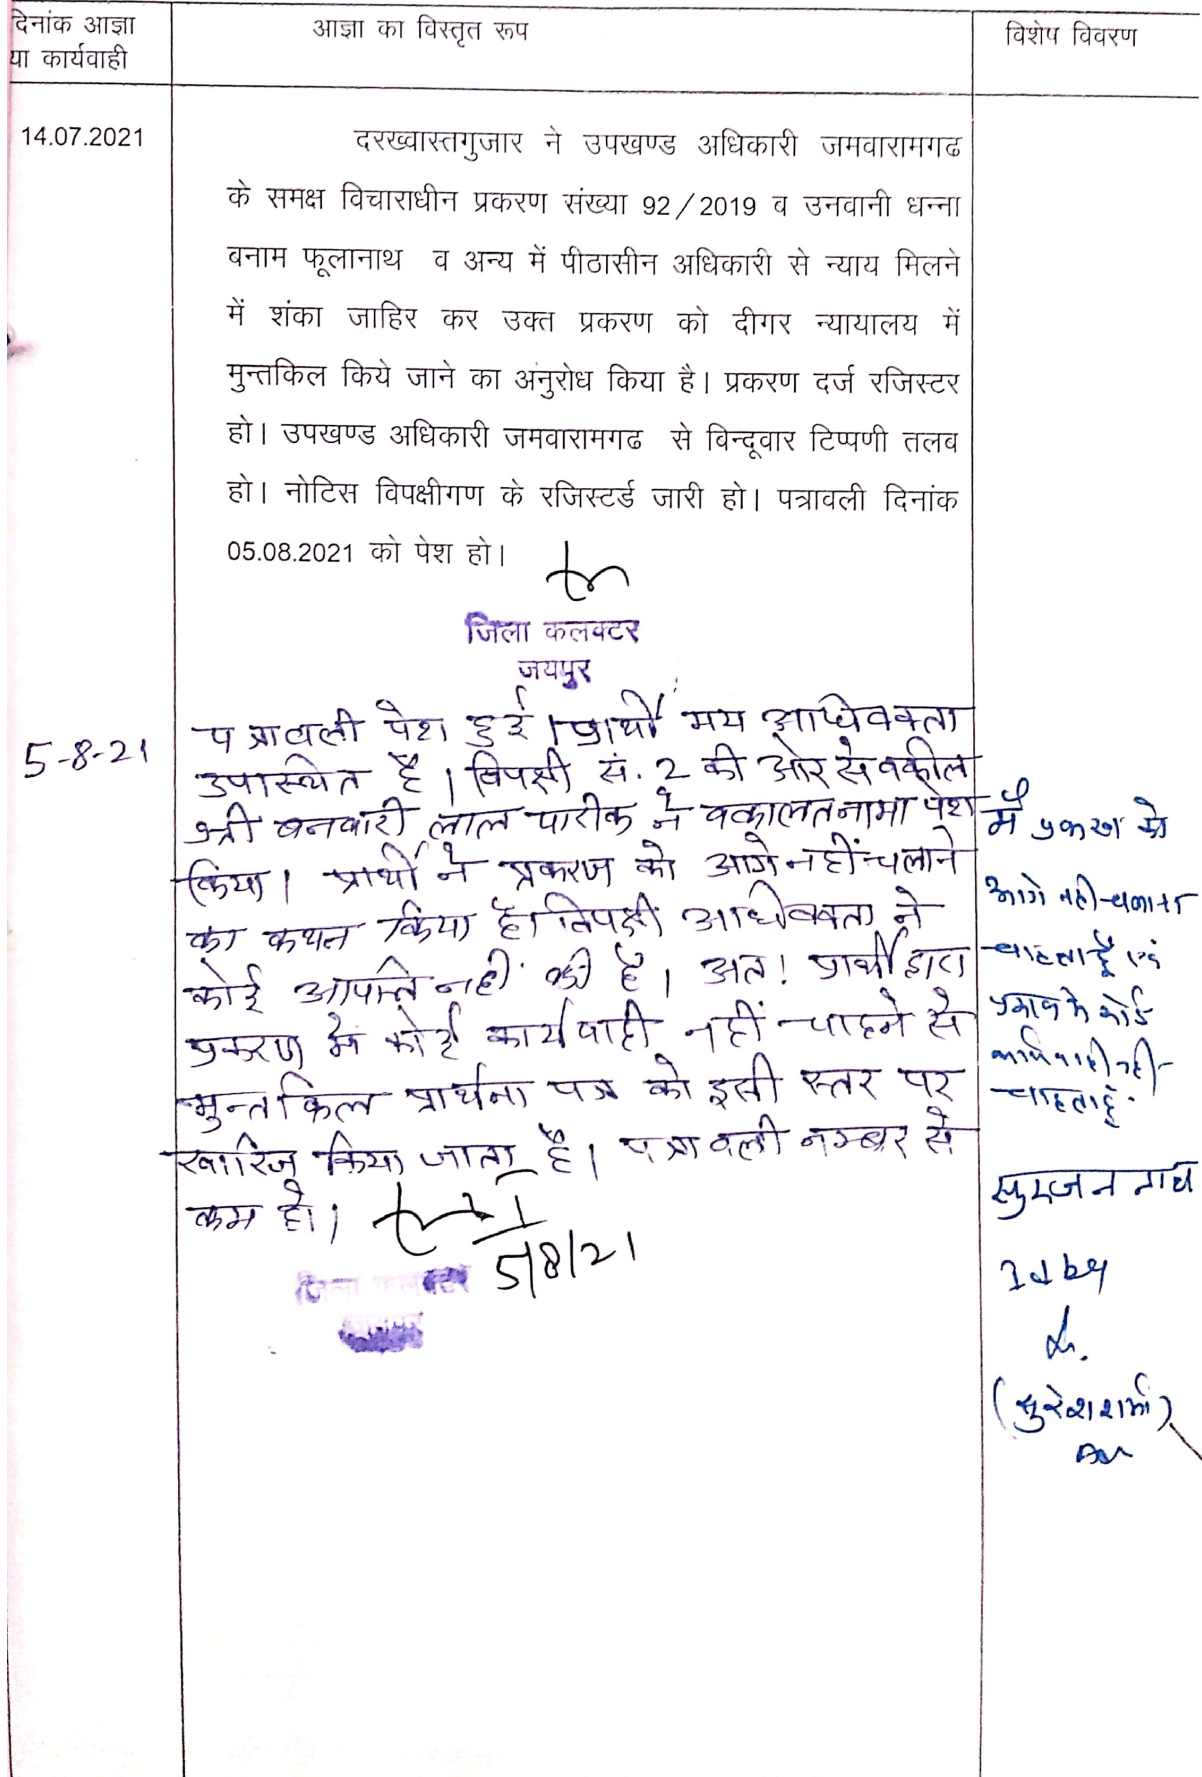 दिनांक आज्ञा
या कार्यवाही
आज्ञा का विस्तृत रूप
विशेष विवरण
14.07.2021
दरख्वास्तगुजार ने उपखण्ड अधिकारी जमवारामगढ
के समक्ष विचाराधीन प्रकरण संख्या 92/2019 व उनवानी धन्ना
बनाम फूलानाथ व अन्य में पीठासीन अधिकारी से न्याय मिलने
में शंका जाहिर कर उक्त प्रकरण को दीगर न्यायालय में
मुन्तकिल किये जाने का अंनुरोध किया है। प्रकरण दर्ज रजिस्टर
हो। उपखण्ड अधिकारी जमवारामगढ से बिन्दूवार टिप्पणी तलब
हो। नोटिस विपक्षीगण के रजिस्टर्ड जारी हो। पत्रावली दिनांक
05.08.2021 को पेश हो।
जिला कलक्टर
जयपुर
5-8-21
पत्रावली पेश हुई। प्रार्थी मय अधिवक्ता
उपास्थित है। विपक्षी सं. 2 की ओर से वकील
श्री बनवारी लाल पारीक ने वकालतनामा पेश
किया। प्रार्थी ने प्रकरण को आगे नहीं चलाने
का कथन किया है। विपक्षी अधिवक्ता ने
कोई आपत्ति नहीं की है। अत! प्रार्थी द्वारा
प्रकरण में कोई कार्यवाही नहीं चाहने से
मुन्तकिल प्रार्थना पत्र को इसी स्तर पर
खारिज किया जाता है। पत्रावली नम्बर से
कम हो।
5/8/21
जिला कलक्टर
जयपुर
मैं प्रकरण को
आगे नही चलाना
चाहता हूँ एवं
कोई
कार्यवाही नही
चाहता हूं.
सुरजन नाथ
Id by
(सुरेश शर्मा)